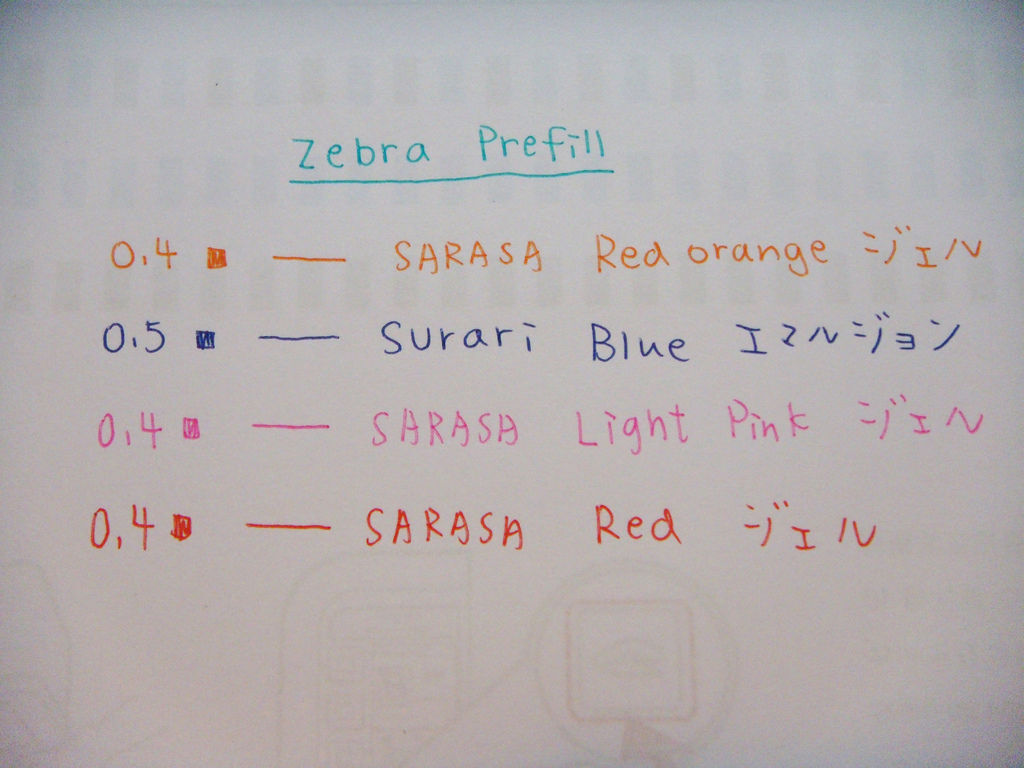 Zebra Prefill
0.4 ■ — SARASA Red orange ジェル
0.5 ■ — Surari Blue エマルジョン
0.4 ■ — SARASA Light Pink ジェル
0.4 ■ — SARASA Red ジェル